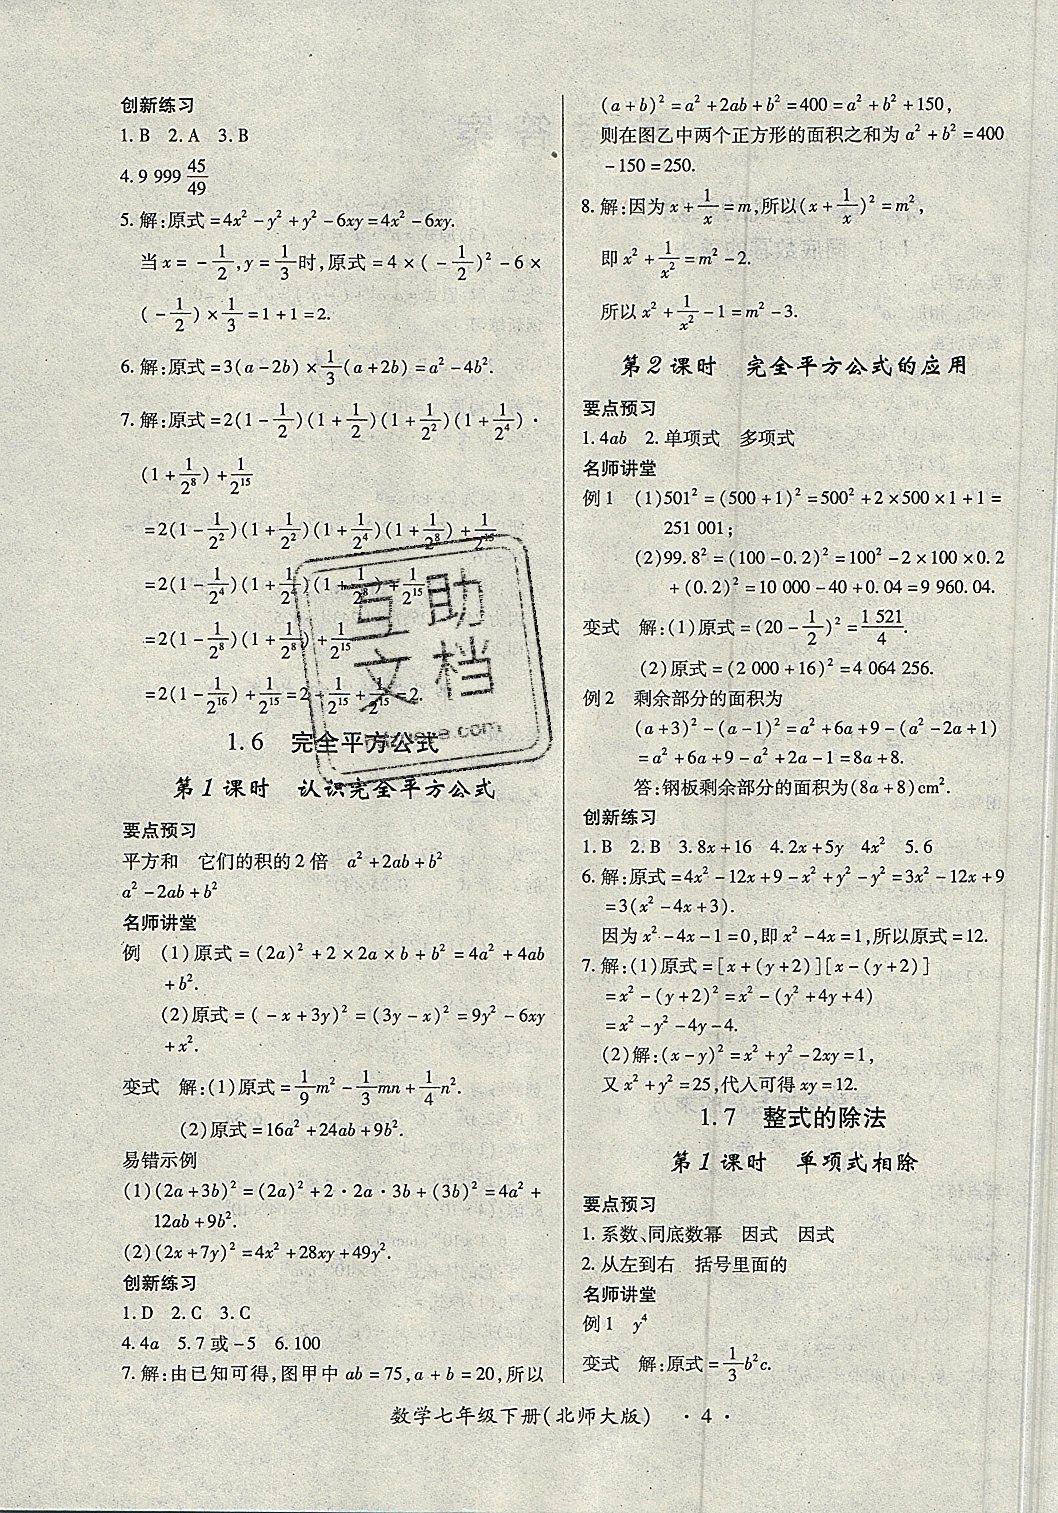 创新练习
1. B  2. A  3. B
4. 9 999 45/49
5. 解:原式=4x²-y²+y²-6xy=4x²-6xy.
当x=-1/2,y=1/3时,原式=4×(-1/2)²-6×
(-1/2)×1/3=1+1=2.
6. 解:原式=3(a-2b)×1/3(a+2b)=a²-4b².
7. 解:原式=2(1-1/2)(1+1/2)(1+1/2²)(1+1/2⁴)·
(1+1/2⁸)+1/2¹⁵
=2(1-1/2²)(1+1/2²)(1+1/2⁴)(1+1/2⁸)+1/2¹⁵
=2(1-1/2⁴)(1+1/2⁴)(1+1/2⁸)+1/2¹⁵
=2(1-1/2⁸)(1+1/2⁸)+1/2¹⁵
=2(1-1/2¹⁶)+1/2¹⁵=2-1/2¹⁵+1/2¹⁵=2.
互助
文档
1.6 完全平方公式
第1课时 认识完全平方公式
要点预习
平方和 它们的积的2倍 a²+2ab+b²
a²-2ab+b²
名师讲堂
例 (1)原式=(2a)²+2×2a×b+b²=4a²+4ab
+b².
(2)原式=(-x+3y)²=(3y-x)²=9y²-6xy
+x².
变式 解:(1)原式=1/9m²-1/3mn+1/4n².
(2)原式=16a²+24ab+9b².
易错示例
(1)(2a+3b)²=(2a)²+2·2a·3b+(3b)²=4a²+
12ab+9b².
(2)(2x+7y)²=4x²+28xy+49y².
创新练习
1. D  2. C  3. C
4. 4a  5. 7或-5  6. 100
7. 解:由已知可得,图甲中ab=75,a+b=20,所以
(a+b)²=a²+2ab+b²=400=a²+b²+150,
则在图乙中两个正方形的面积之和为a²+b²=400
-150=250.
8. 解:因为x+1/x=m,所以(x+1/x)²=m²,
即x²+1/x²=m²-2.
所以x²+1/x²-1=m²-3.
第2课时 完全平方公式的应用
要点预习
1. 4ab  2. 单项式 多项式
名师讲堂
例1 (1)501²=(500+1)²=500²+2×500×1+1=
251 001;
(2)99.8²=(100-0.2)²=100²-2×100×0.2
+(0.2)²=10 000-40+0.04=9 960.04.
变式 解:(1)原式=(20-1/2)²=1 521/4.
(2)原式=(2 000+16)²=4 064 256.
例2 剩余部分的面积为
(a+3)²-(a-1)²=a²+6a+9-(a²-2a+1)
=a²+6a+9-a²+2a-1=8a+8.
答:钢板剩余部分的面积为(8a+8)cm².
创新练习
1. B  2. B  3. 8x+16  4. 2x+5y 4x²  5. 6
6. 解:原式=4x²-12x+9-x²+y²-y²=3x²-12x+9
=3(x²-4x+3).
因为x²-4x-1=0,即x²-4x=1,所以原式=12.
7. 解:(1)原式=[x+(y+2)][x-(y+2)]
=x²-(y+2)²=x²-(y²+4y+4)
=x²-y²-4y-4.
(2)解:(x-y)²=x²+y²-2xy=1,
又x²+y²=25,代入可得xy=12.
1.7 整式的除法
第1课时 单项式相除
要点预习
1. 系数、同底数幂 因式 因式
2. 从左到右 括号里面的
名师讲堂
例1 y⁴
变式 解:原式=1/3b²c.
数学七年级下册(北师大版) ·4·